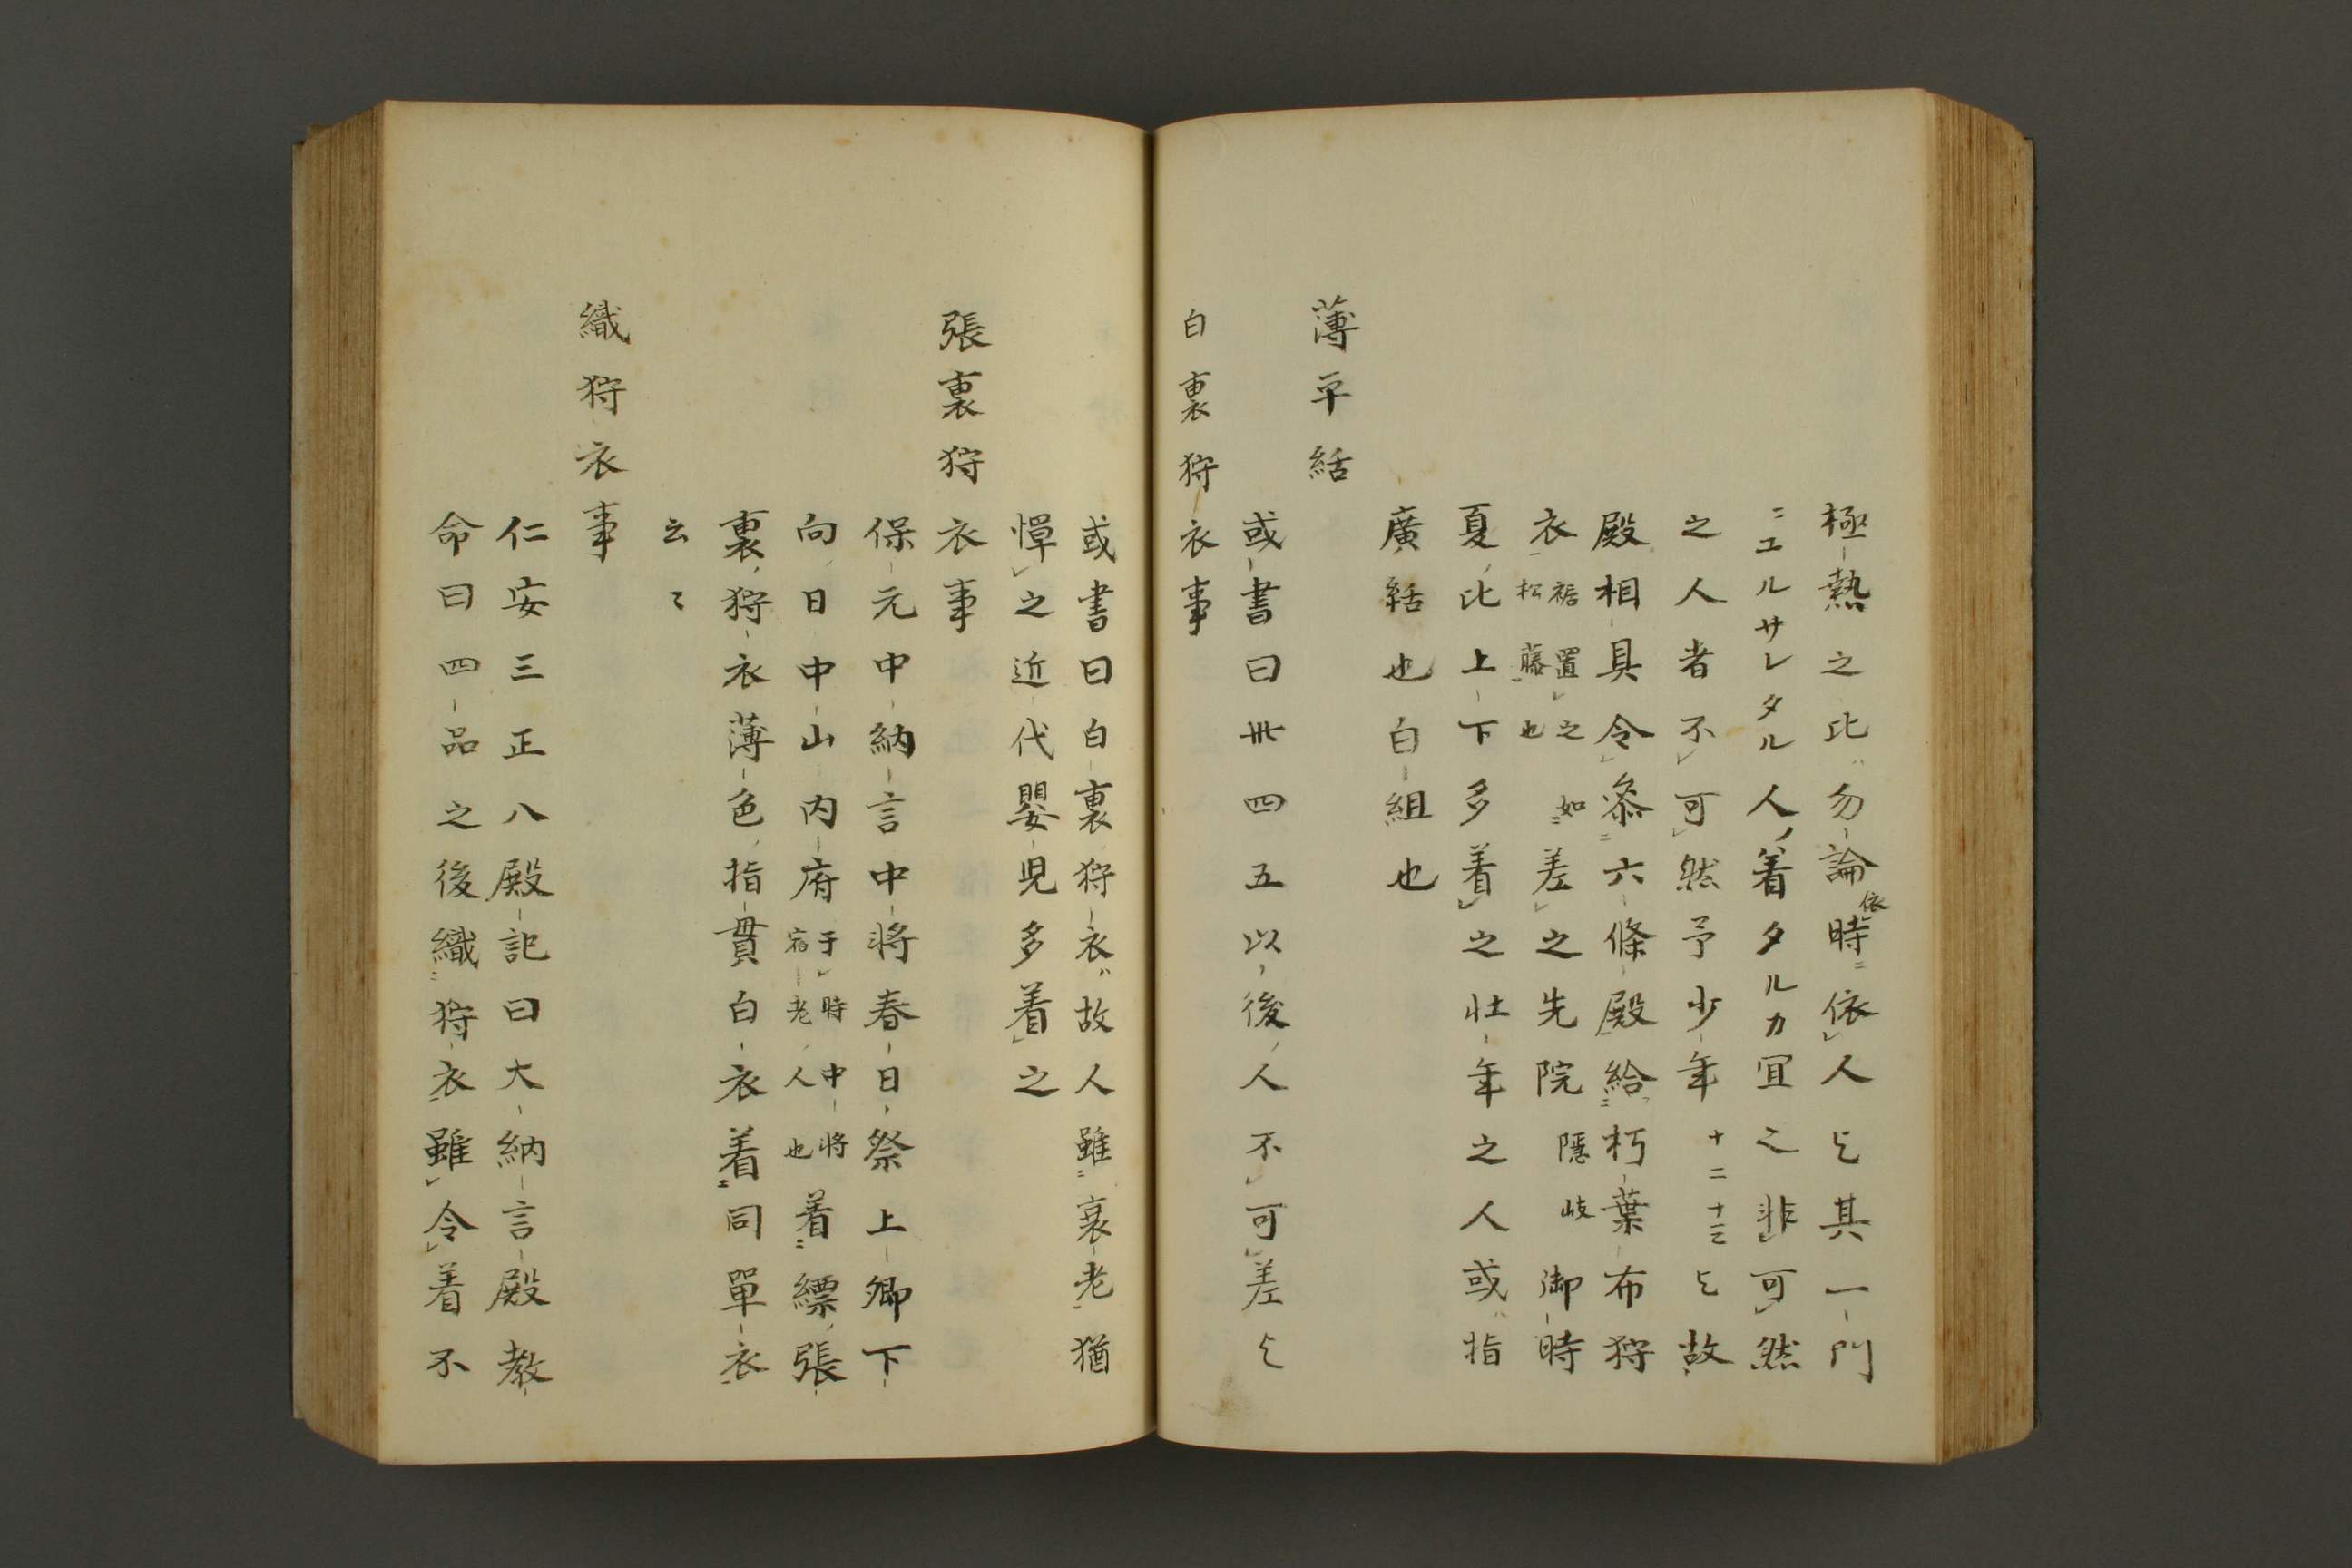 極熱之比勿論時依人ヒ其一門
ニエルサレタル人着タルカ冝之非可然
之人者不可然予少年十二十三ヒ故
殿相具令叅六條殿給朽葉布狩
衣裾置之如松藤也差之先院隠岐御時
夏比上下多着之壮年之人或指
廣括也白組也
薄平括
或書曰卅四五以後人不可差ヒ
白裏狩衣事
或書曰白裏狩衣故人雖衰老猶
憚之近代嬰児多着之
張裏狩衣事
保元中納言中将春日祭上卿下
向日中山内府于時中将宿老人也着縹張
裏狩衣薄色指貫白衣着同單衣
云々
織狩衣事
仁安三正八殿記曰大納言殿教
命曰四品之後織狩衣雖令着不